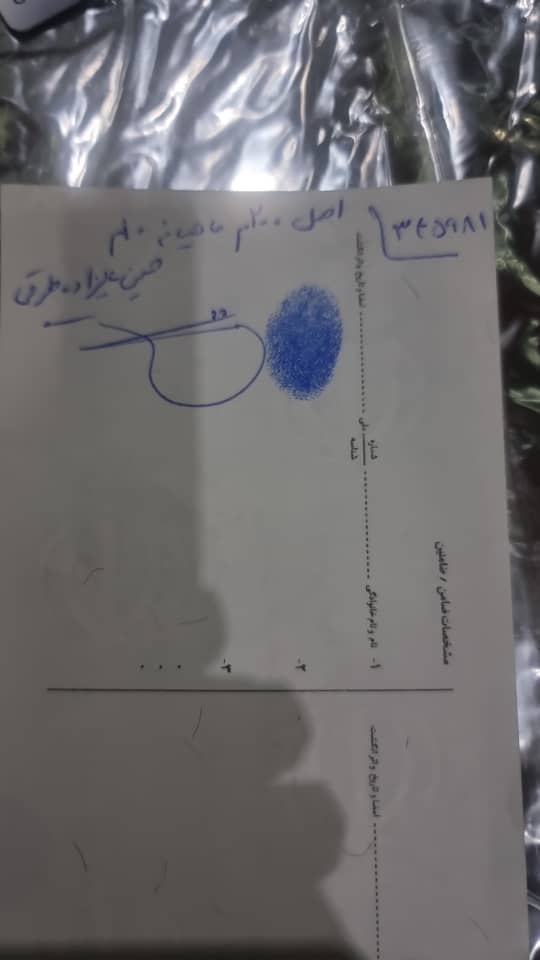 ۳۴۵۹۸۱
اصل ۲۰۰م ماهیانه ۱۰م
حسین علیزاده طرقی
مشخصات ضامن / ضامنین
۱- نام و نام خانوادگی شماره ملی شناسه امضا و تاریخ و اثر انگشت
۲-
۳-
امضا و تاریخ و اثر انگشت